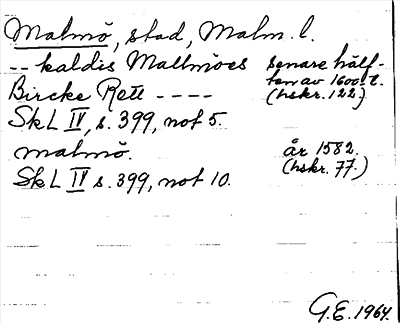 Malmö, stad, Malm. l.
-- kaldis Mallmöes senare hälf-
Bircke Rett ---- ten av 1600-t.
(hskr. 122)
SkL IV, s. 399, not 5.
malmö. år 1582.
SkL IV s. 399, not 10. (hskr. 77.)
G.E. 1964.